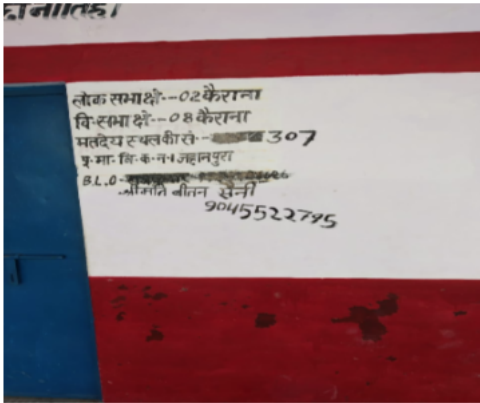 लोक सभा क्षे--02 कैराना
वि-सभा क्षे--08 कैराना
मतदेय स्थल की सं-- 307
पू.मा.वि.क.न.1 जहानपुरा
B.L.O-
श्रीमति नीतन सैनी
9045522795